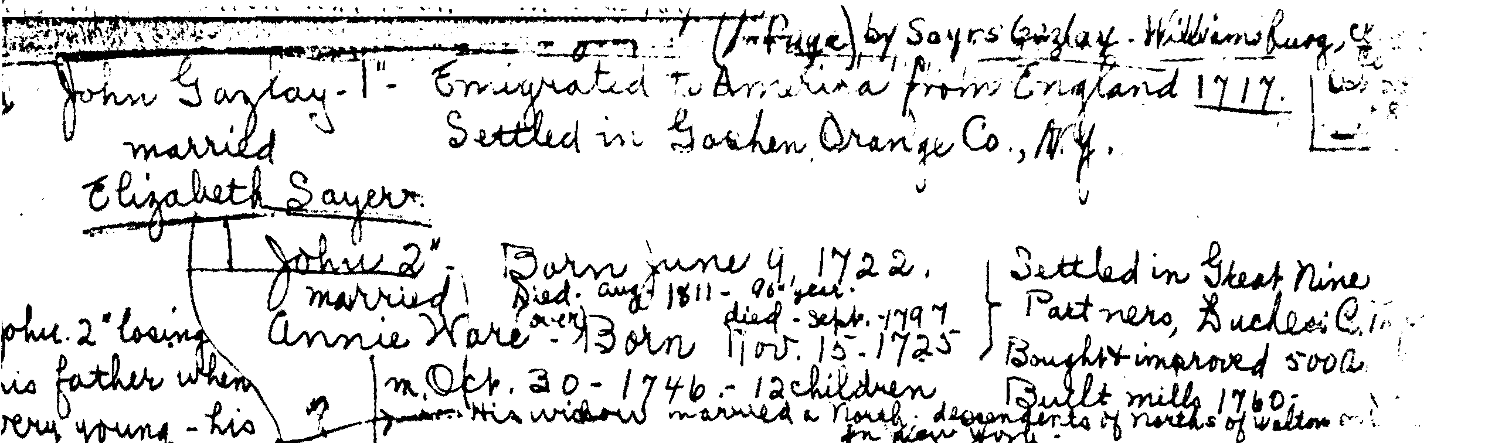 by Sayrs Gazlay - Williamsburg,
John Gazlay - 1" - Emigrated to America from England 1717.
married Settled in Goshen, Orange Co., N.Y.
Elizabeth Sayer.
John 2" - Born June 9, 1722. Settled in Great Nine
married Died - Aug - 1811 - 90 - year. Partners,
over died - Sept. - 1797
Annie Ware - Born Nov. 15 - 1725 Bought & improved 500a
2" losing
m. Oct. 30 - 1746 - 12 children Built mills 1760 -
his father when
His widow married a North - descendents of Norths of Walton
very young - his ? in New York -